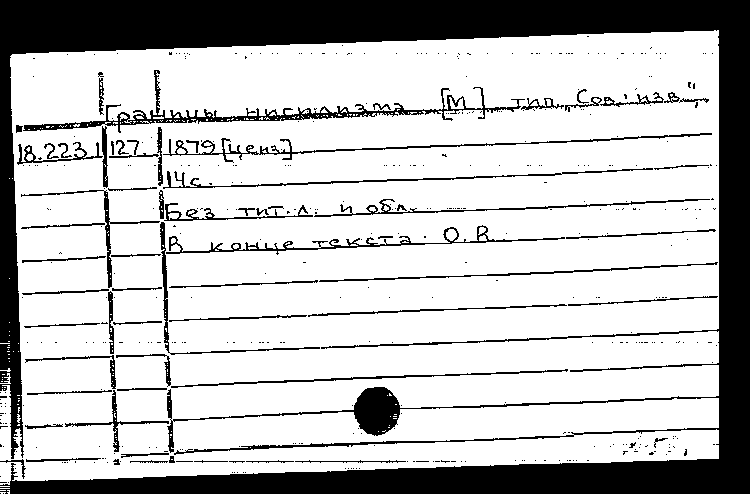 Границы нигилизма [М] тип. „Сов. изв.",
18.223.1 127. 1879 [ценз.]
14 с.
Без тит. л. и обл.
В конце текста: О. В.